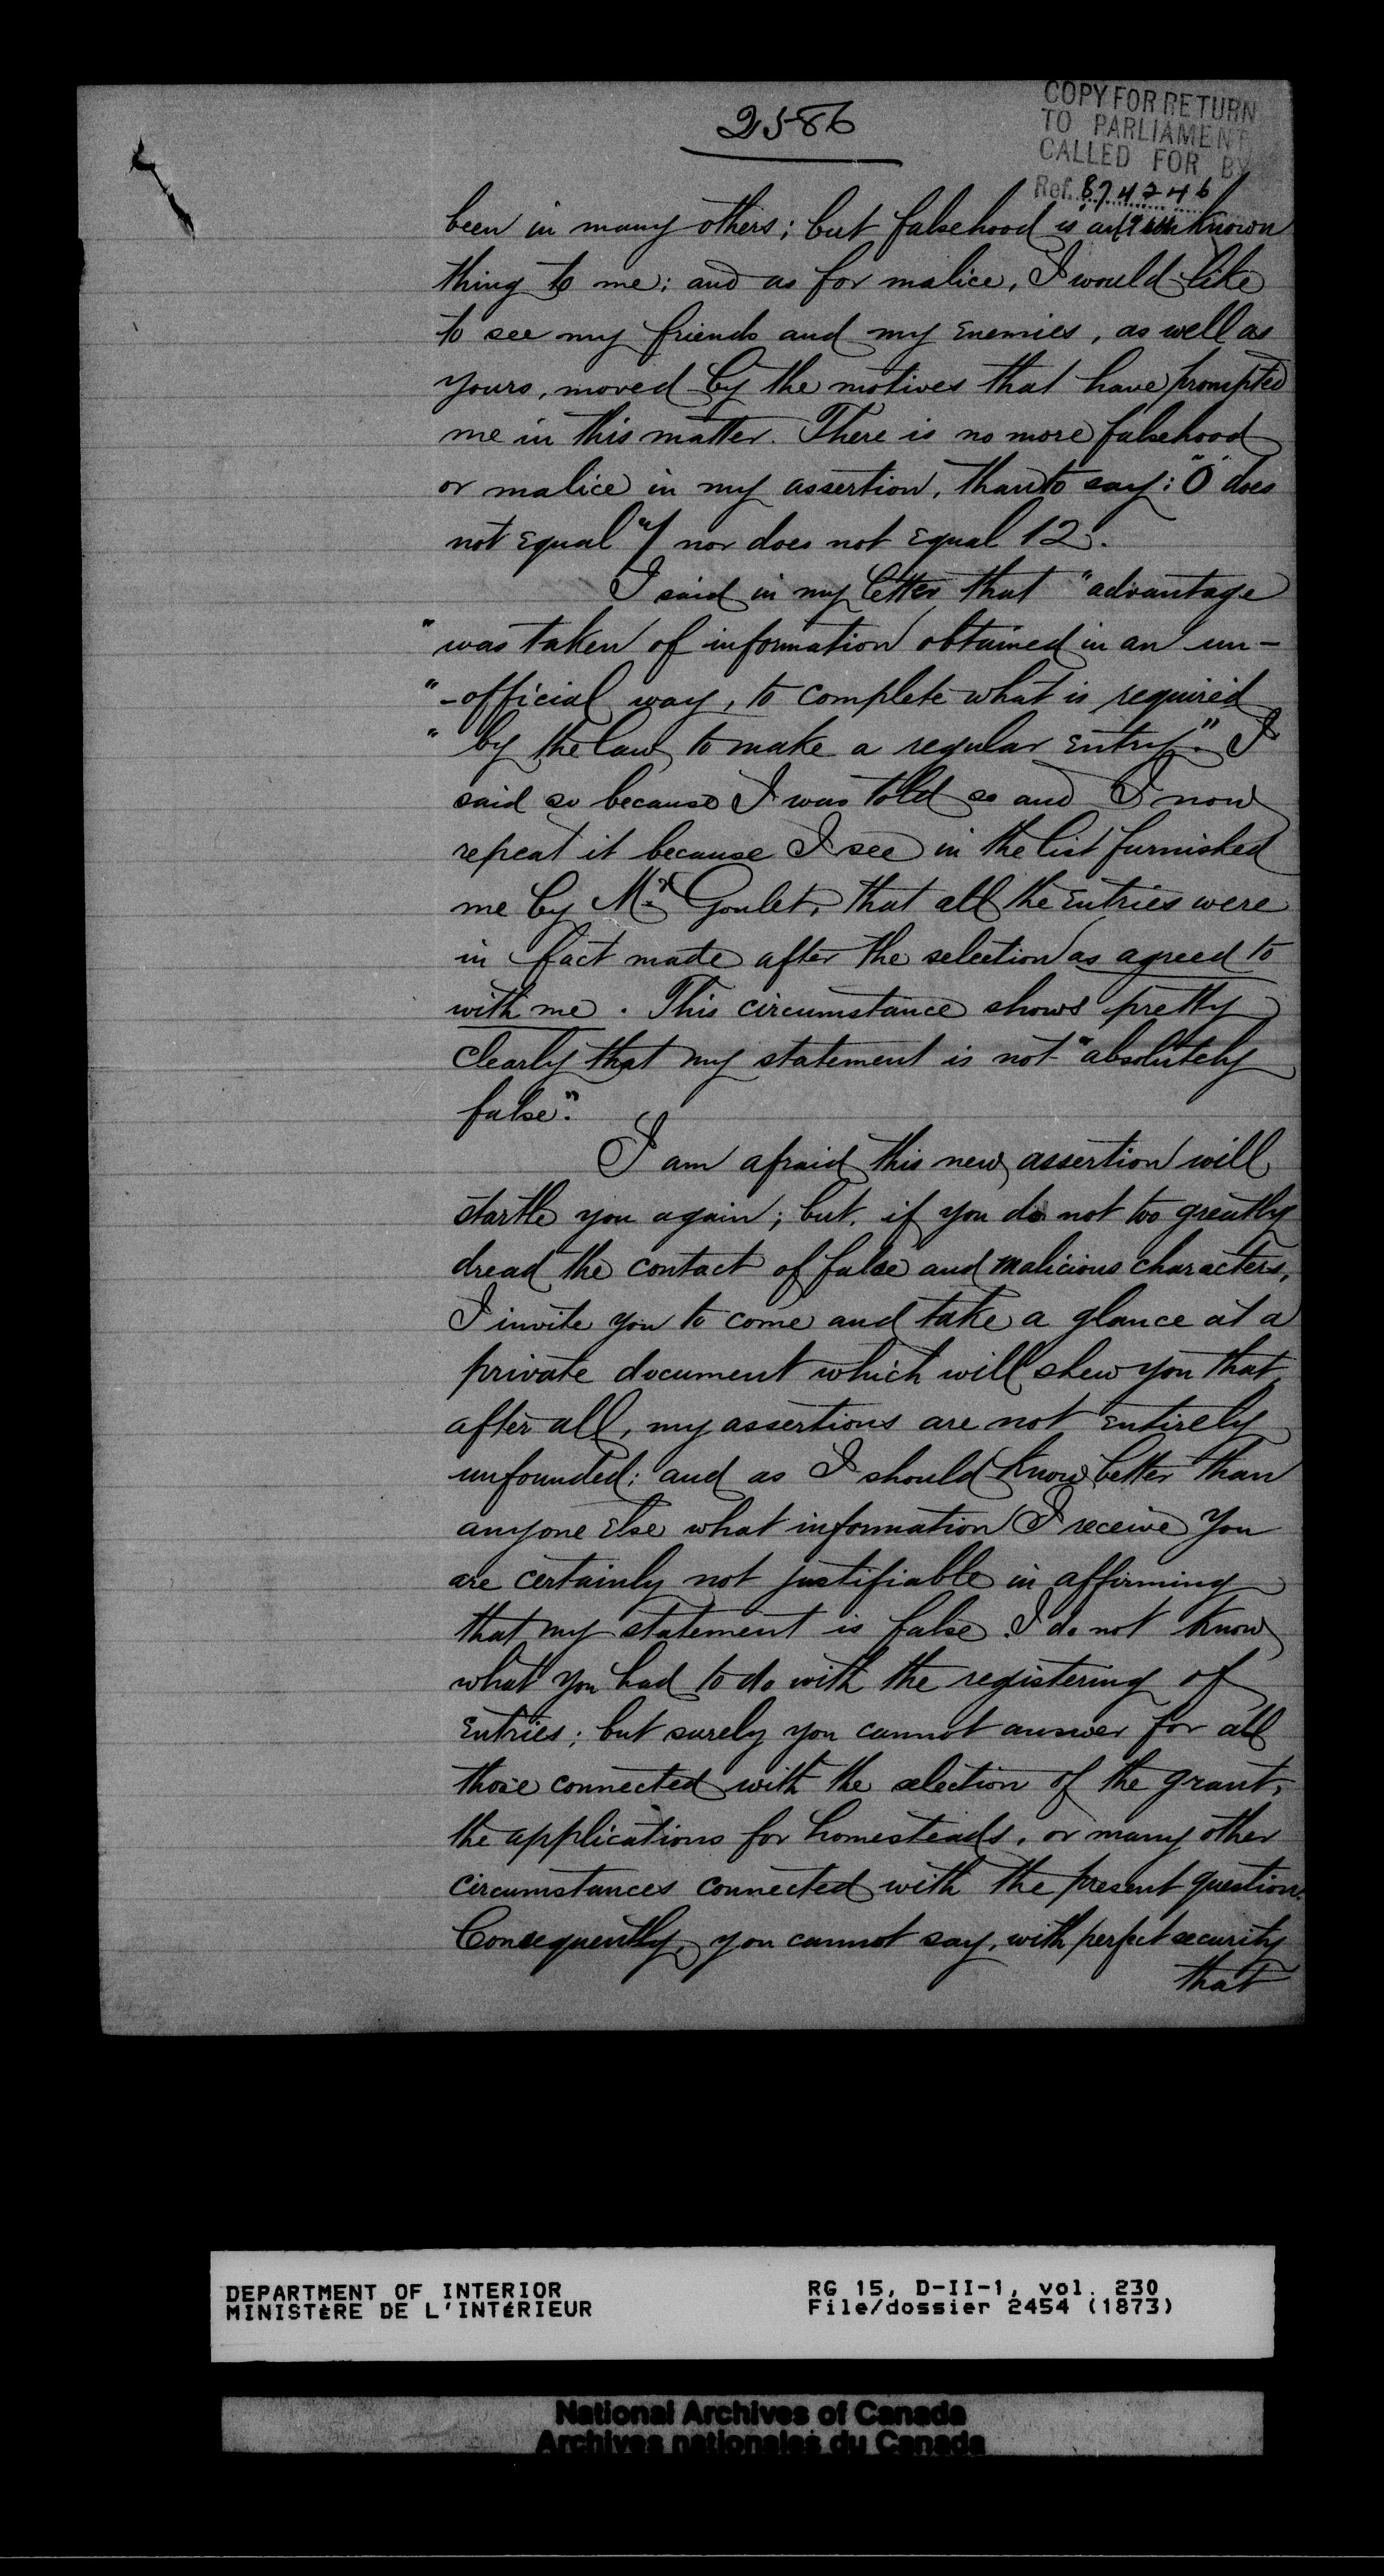 2586
COPY FOR RETURN
TO PARLIAMENT
CALLED FOR BY
Ref. 874246
been in many others; but falsehood is an unknown
thing to me; and as for malice, I would like
to see my friends and my enemies, as well as
yours, moved by the motives that have prompted
me in this matter. There is no more falsehood
or malice in my assertion, than to say: "0" does
not equal "1 nor does not equal 12.
I said in my letter that "advantage
"was taken of information obtained in an un-
"-official way, to complete what is required
" by the law to make a regular entry". I
said so because I was told so and I now
repeat it because I see in the list furnished
me by Mr. Goulet, that all the entries were
in fact made after the selection as agreed to
with me. This circumstance shows pretty
clearly that my statement is not "absolutely
false".
I am afraid this new assertion will
startle you again; but, if you do not too greatly
dread the contact of false and malicious characters,
I invite you to come and take a glance at a
private document which will shew you that,
after all, my assertions are not entirely
unfounded; and as I should know better than
anyone else what information I receive you
are certainly not justifiable in affirming
that my statement is false. I do not know
what you had to do with the registering of
entries; but surely you cannot answer for all
those connected with the selection of the grant,
the applications for homesteads, or many other
circumstances connected with the present question.
Consequently, you cannot say, with perfect security
that
DEPARTMENT OF INTERIOR
MINISTÈRE DE L'INTÉRIEUR
RG 15, D-II-1, vol. 230
File/dossier 2454 (1873)
National Archives of Canada
Archives nationales du Canada